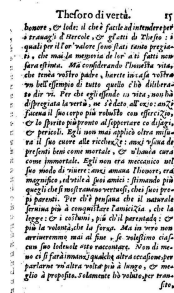 Thesoro di vertù. 15
honore, & lode: il che è facile ad intendere per
i travagli d'Hercole, & gl'atti di Theseo: i
quali per il lor valore sono stati tanto pregia-
ti, che mai la memoria de lor'atti fatti non
sarà estinta. Ma considerando l'honesta vita,
che tenea vostro padre, harete in casa vostra
un bell'essempio di tutto quello ch'io delibera-
to dir vi. Per che egli essendo in vita, non ha
dispregiata la vertù, ne s'è dato all'ocio: anzi
facena il suo corpo più robusto con essercizio,
& lo spirito più pronto al sopportare co disagi,
& pericoli. Egli non mai applicò oltra misu-
ra il suo cuore alle ricchezze: anzi usava de
presenti beni come mortale, & n'havea cura
come immortale. Egli non era meccanico nel
suo modo di vivere: anzi amava l'honore, era
magnifico, & usava a suoi amici, stimando più
quegli che si mostravano vertuosi, che suoi pro-
pi parenti. Per ch'e pensava che al naturale
serviva più à conquistare l'amicizia, che la
legge: & i costumi, più ch'il parentado: &
più la volontà, che la forza. Ma in vero non
arriveremmo mai al fine, s'io volessimo ciascu-
cun suo lodevole atto raccontare. Non di me-
no ci si farà innanzi qualche altra occasione, per
parlarne un'altra volta più à lungo, & me-
glio à proposito. Solamente hò voluto, per tran-